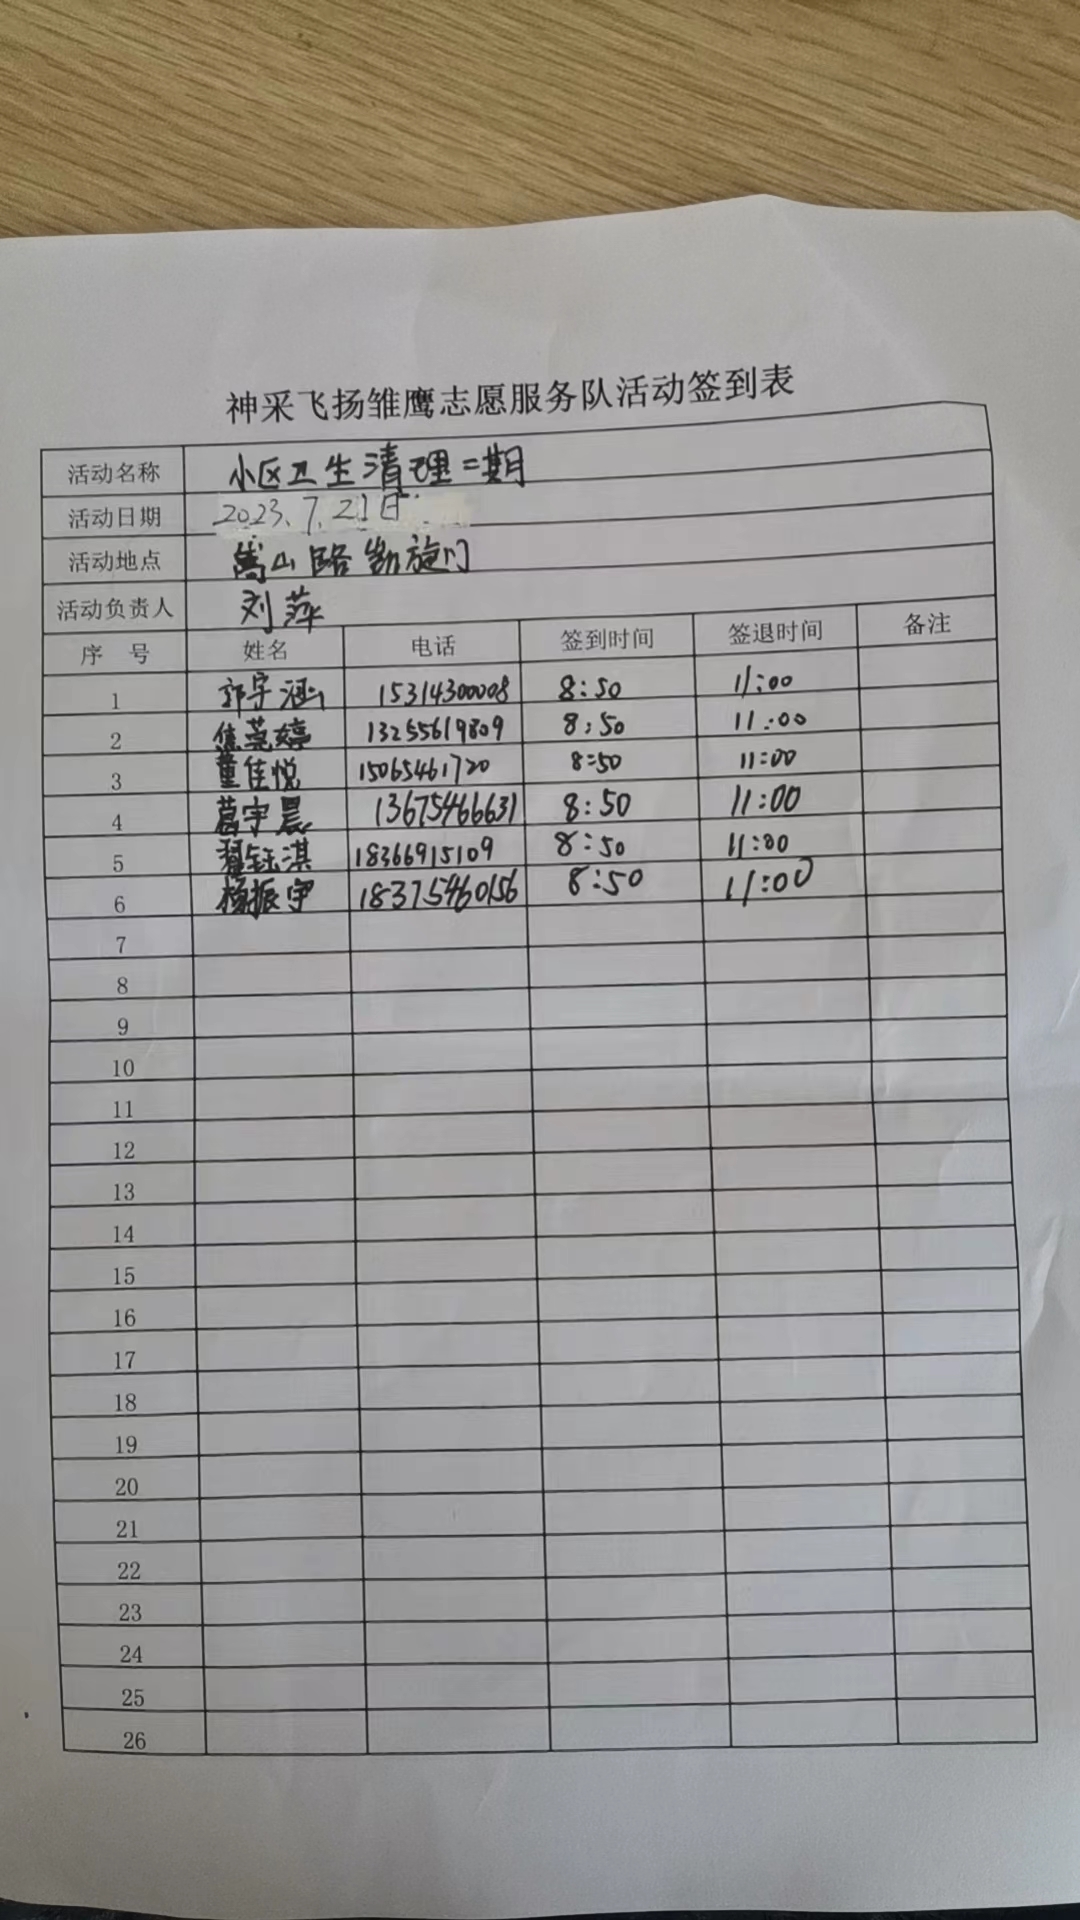 神采飞扬雏鹰志愿服务队活动签到表
活动名称 小区卫生清理二期
活动日期 2023.7.21日
活动地点 嵩山路凯旋门
活动负责人 刘萍
序号 姓名 电话 签到时间 签退时间 备注
1 郭宇涵 15314300008 8:50 11:00
2 焦莞婷 13255619809 8:50 11:00
3 董佳悦 15065461720 8:50 11:00
4 葛宇晨 13675466631 8:50 11:00
5 翟钰淇 18366915109 8:50 11:00
6 杨振宇 18375460156 8:50 11:00
7
8
9
10
11
12
13
14
15
16
17
18
19
20
21
22
23
24
25
26